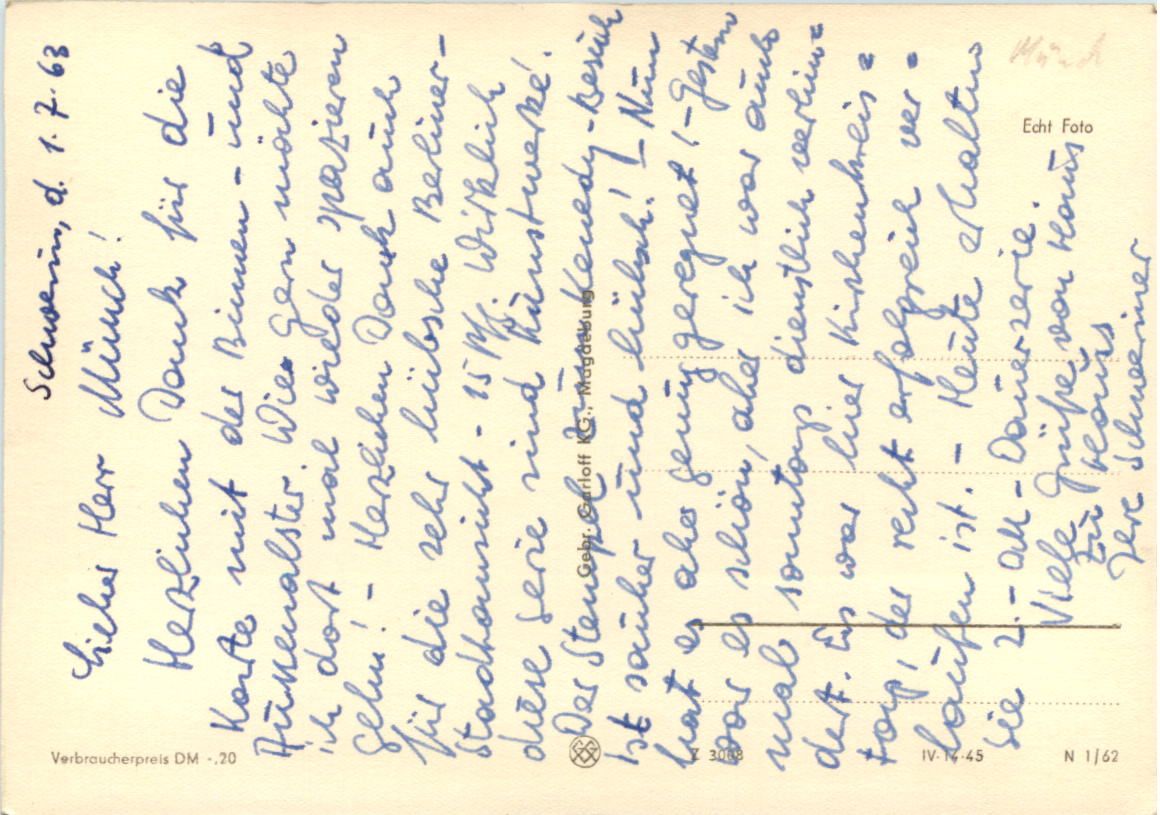 Schwerin, d. 1.7.63
Lieber Herr Münch!
Herzlichen Dank für die
Karte mit der Binnen- und
Außenalster. Wie gern möchte
ich dort mal wieder spazieren
gehn! - Herzlichen Dank auch
für die sehr hübsche Berliner-
Stadtansicht - 15 Pf. Wirklich
diese Serie sind Kunstwerke!
Der Stempel zum Kenedy-Besuch
ist sauber und hübsch! - Nun
hat es aber genug geregnet! - Gestern
war es schön, aber ich war auch
mal sonntags dienstlich verhin=
dert. Es war hier Kirchenkreis=
tag, der recht erfolgreich ver=
laufen ist. - Heute erhalten
Sie 2.- DM - Dauerserie.
Viele Grüße von Haus
zu Haus
Ihre Schweriner
Münch
Echt Foto
Gebr. Garloff KG., Magdeburg
Verbraucherpreis DM -,20
Z 3088
IV-14-45
N 1/62